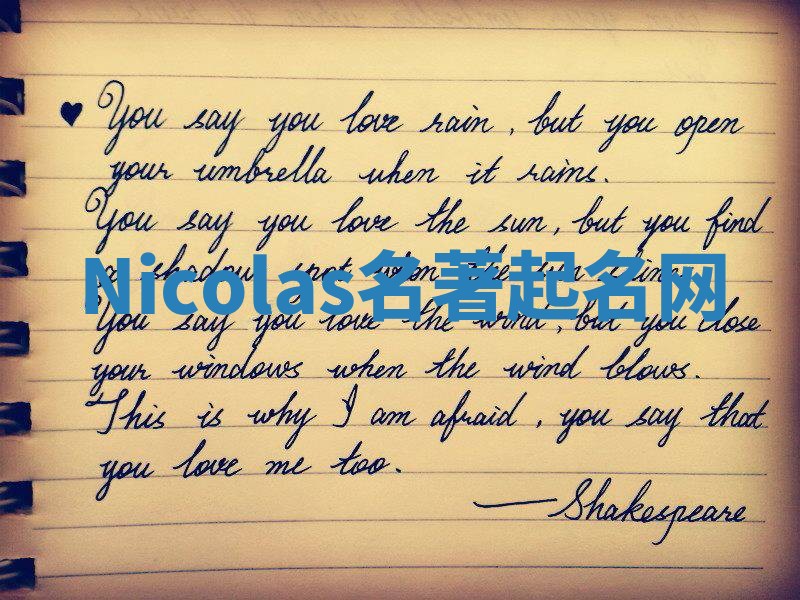 ♥ You say you love rain, but you open
your umbrella when it rains.
You say you love the sun, but you find
a shadow spot when the sun shines.
Nicolas名著起名网
You say you love the wind, but you close
your windows when the wind blows.
This is why I am afraid, you say that
you love me too.
—Shakespeare